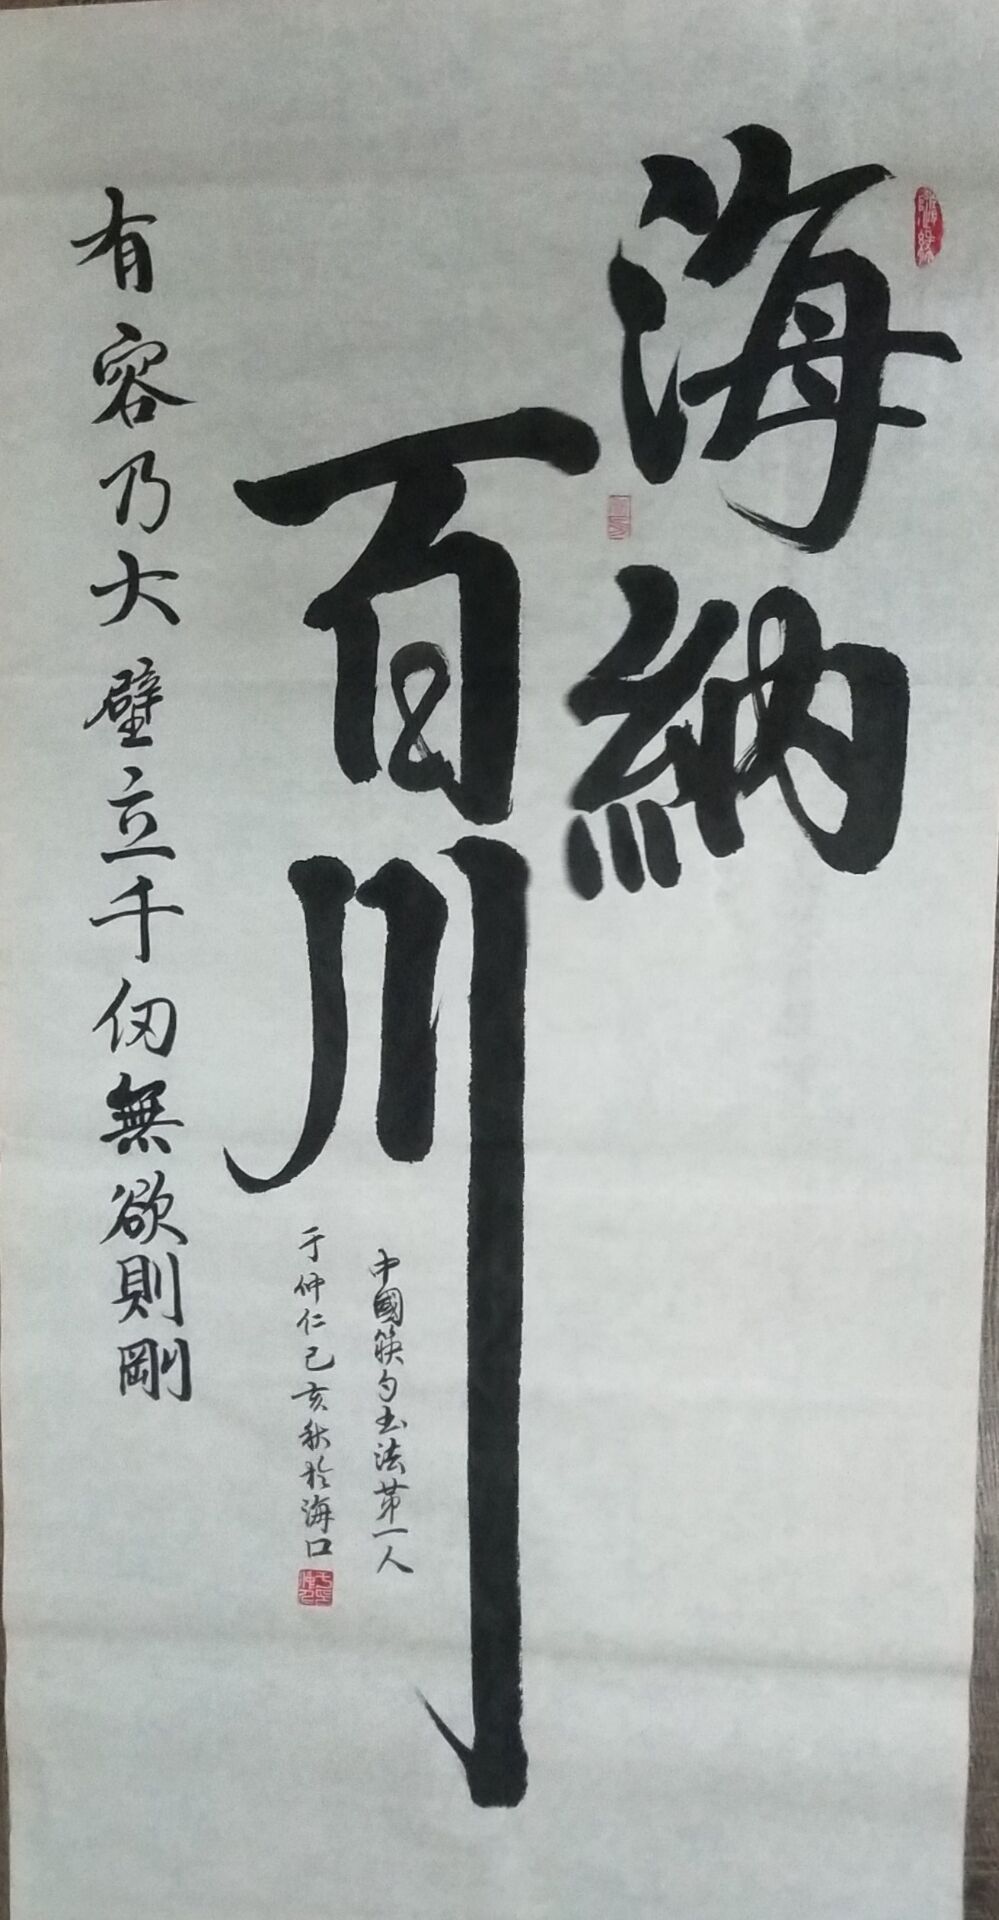 海納
百川
中國筷勺书法第一人
于仲仁己亥秋於海口
有容乃大壁立千仞無欲則剛